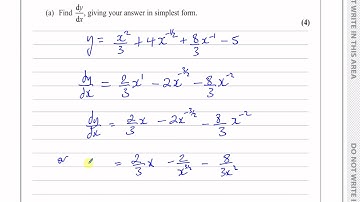 (a) Find dy/dx, giving your answer in simplest form.
(4)
y = x²/3 + 4x^(-1/2) + 8/3 x^(-1) - 5
dy/dx = 2/3 x¹ - 2x^(-3/2) - 8/3 x^(-2)
dy/dx = 2/3 x - 2x^(-3/2) - 8/3 x^(-2)
or = 2/3 x - 2/x^(3/2) - 8/3x²
WRITE IN THIS AREA
DO NOT WRI